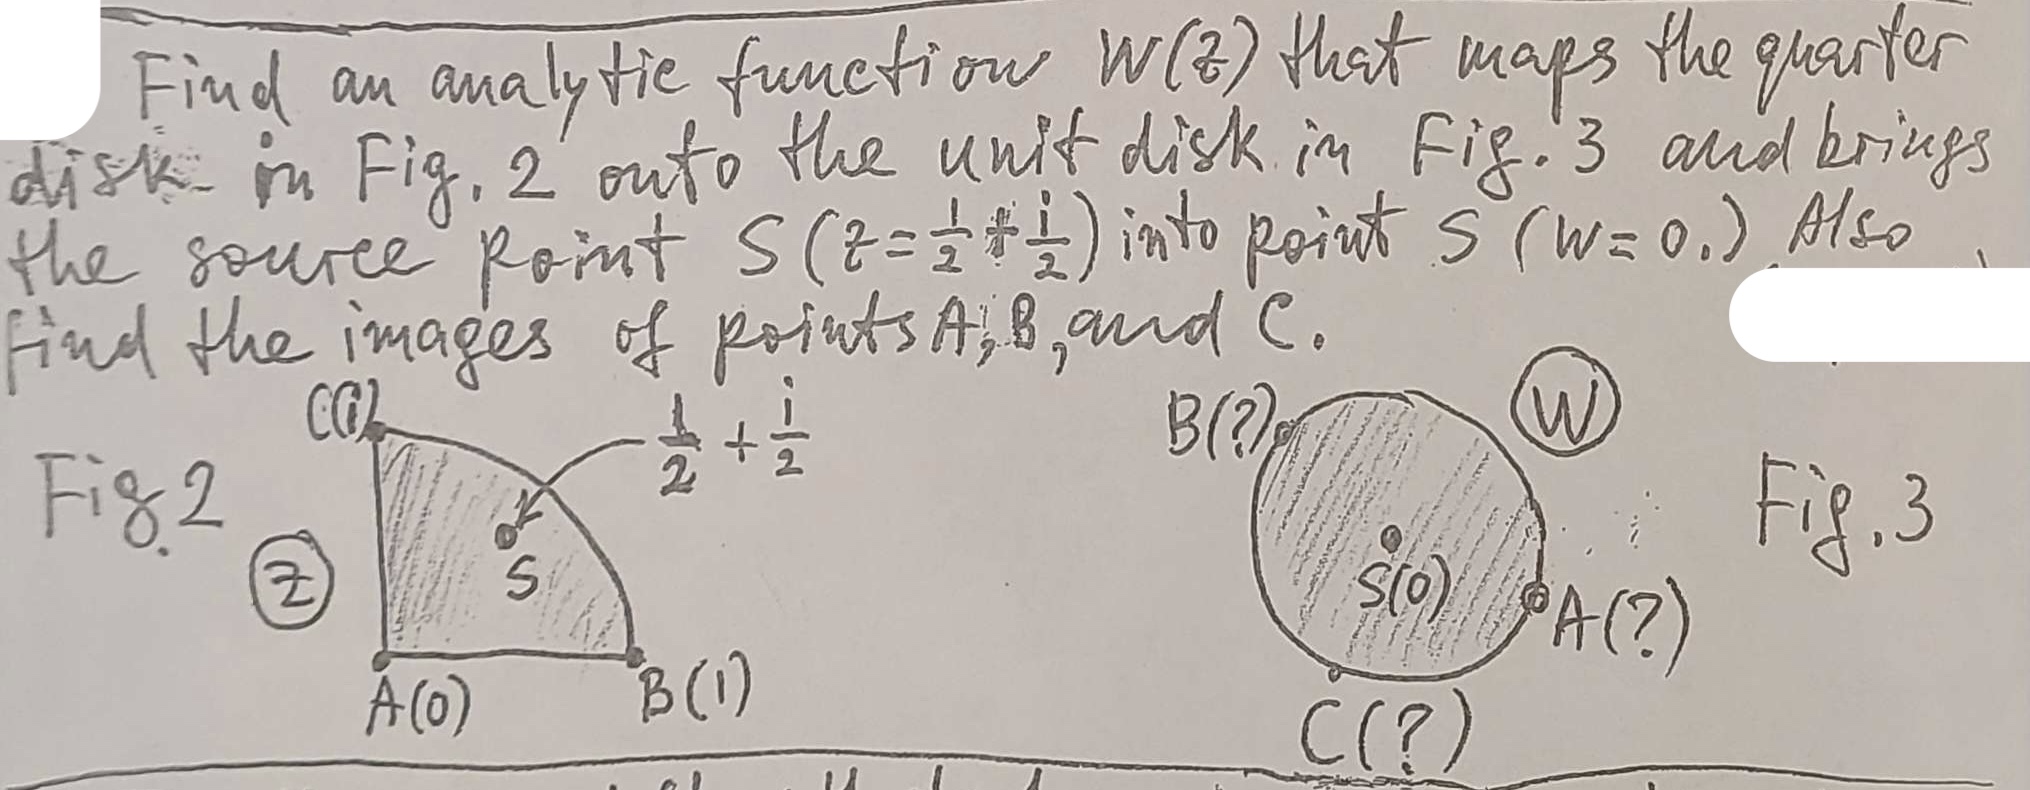 Find an analytic function W(z) that maps the quarter
disk in Fig. 2 onto the unit disk in Fig. 3 and brings
the source point S (z = 1/2 + i/2) into point S (W = 0.) Also
find the images of points A, B, and C.
C(i)
1/2 + i/2
B(?)
W
Fig 2
Fig. 3
S
S(0)
Z
A(?)
A(0)
B(1)
C(?)